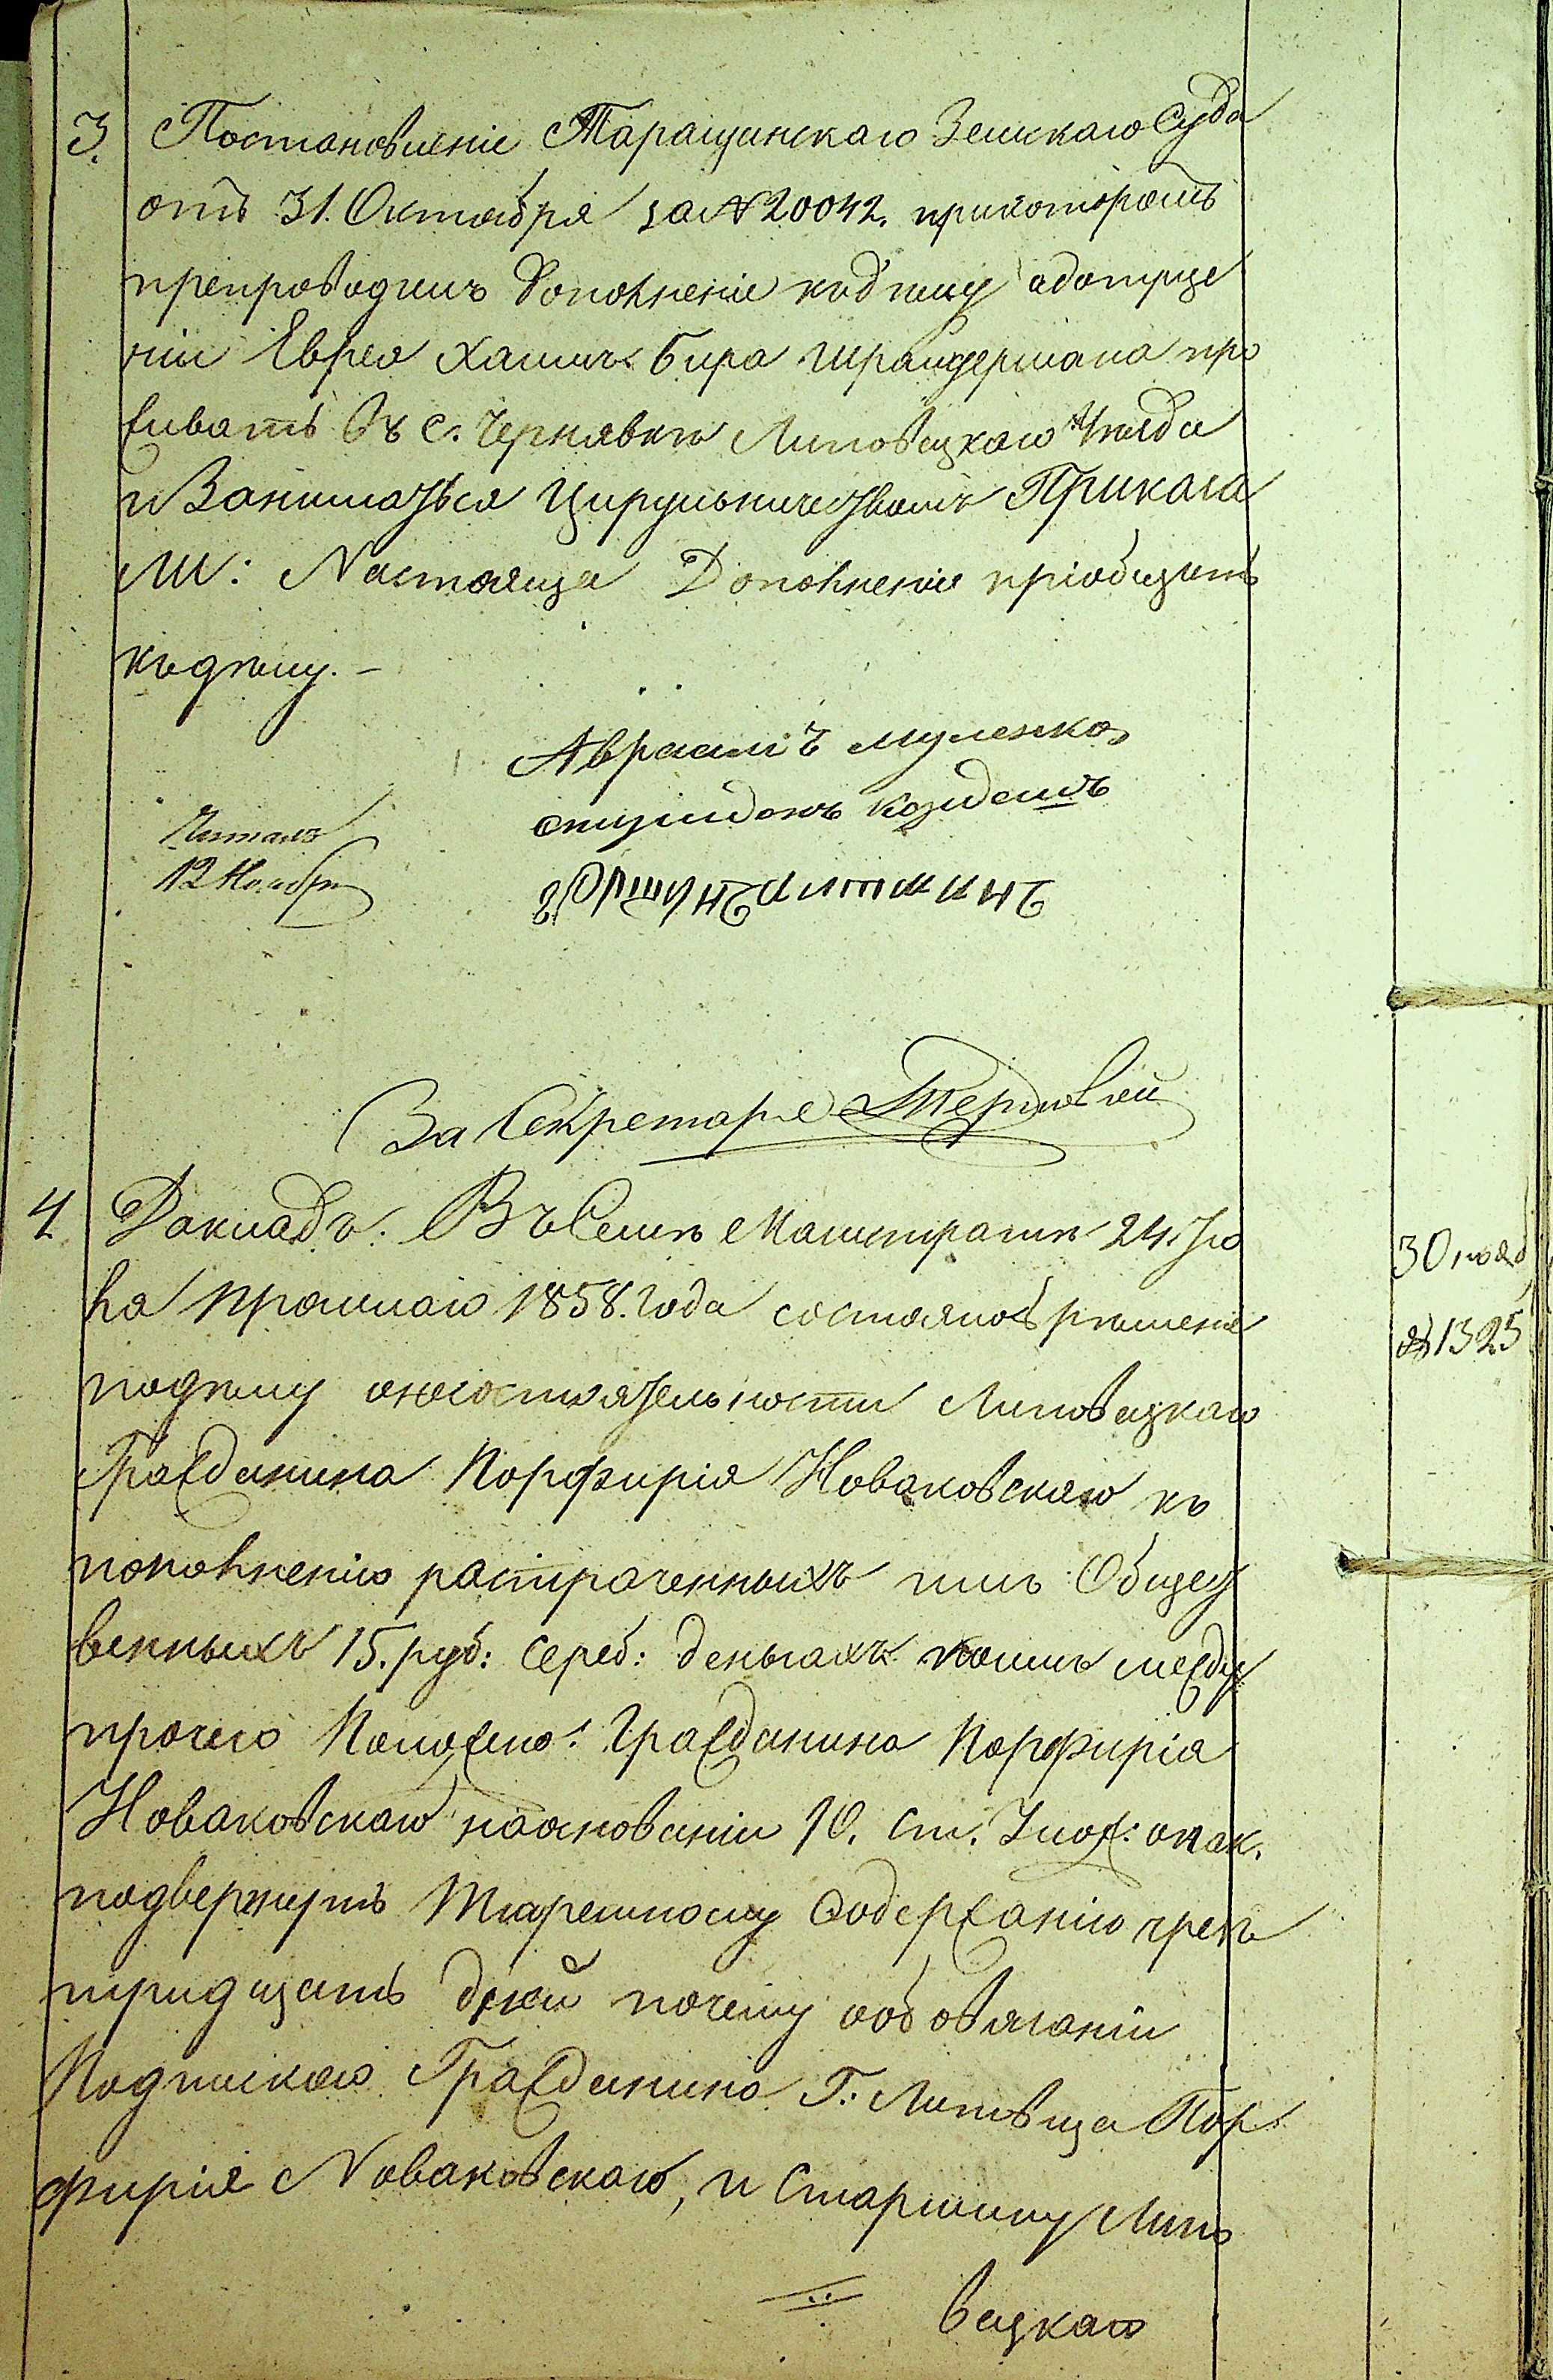 3. Постановленіе Таращинскаго Земскаго Суда
отъ 31. Октября за № 20042. прикоторомъ
препроводилъ дополненіе кдѣлу
ніи Еврея Хаимъ Бира Шрайдермана про
живать въ с. Чернявкѣ Липовецкаго Уѣзда
и Заниматься Цирульничествомъ Приказа
ли: Настояща Дополненіе пріобщить
къдѣлу. –
Авраамъ
Читалъ
12 Ноября
За Секретаря
4. Докладъ. Въ Семъ Магистратѣ 24. Ію
ля прошлаго 1858. года состоялось рѣшеніе
подѣлу онесостоятельности Липовецкаго
Гражданина Порфирія Новаковскаго къ
пополненію растраченныхъ имъ Общест
венныхъ 15. руб: сереб: деньгахъ коимъ между
прочего Положено: Гражданина Порфирія
Новаковскаго наоснованіи 10. ст. Улож: онак.
подвергнуть Тюремному Содержанію чрезъ
тридцать дней почему
Гражданина Г. Липовца Пор
фирія Новаковскаго, и Старшину Липо
вецкаго
30 нояб
№ 1325